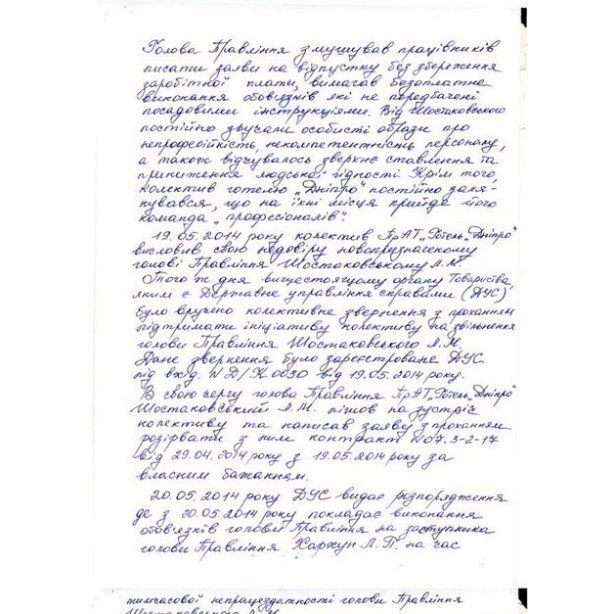 Голова Правління змушував працівників
писати заяви на відпустку без збереження
заробітної плати, вимагав безоплатне
виконання обов'язків які не передбачені
посадовими інструкціями. Від Шостаковського
постійно звучали особисті образи про
непрофесійність, некомпетентність персоналу,
а також відчувалось зверхнє ставлення та
приниження людської гідності. Крім того,
колектив готелю „Дніпро" постійно заля-
кувався, що на їхні місця прийде його
команда „професіоналів".
19.05.2014 року колектив ПрАТ „Готель „Дніпро"
висловив свою недовіру новопризначеному
голові Правління Шостаковському Л.М.
Того ж дня вищестоящому органу Товариства,
яким є Державне управління справами (ДУС)
було вручено колективне звернення з проханням
підтримати ініціативу колективу на звільнення
голови Правління Шостаковського Л.М.
Дане звернення було зареєстроване ДУС
під вхід. N Д/К 0030 від 19.05.2014 року.
В свою чергу голова Правління ПрАТ „Готель „Дніпро"
Шостаковський Л.М. пішов на зустріч
колективу та написав заяву з проханням
розірвати з ним контракт N07.3-2-17
від 29.04.2014 року з 19.05.2014 року за
власним бажанням.
20.05.2014 року ДУС видає розпорядження
де з 20.05.2014 року покладає виконання
обов'язків голови Правління на заступника
голови Правління Хархун Л.П. на час
тимчасової непрацездатності голови Правління